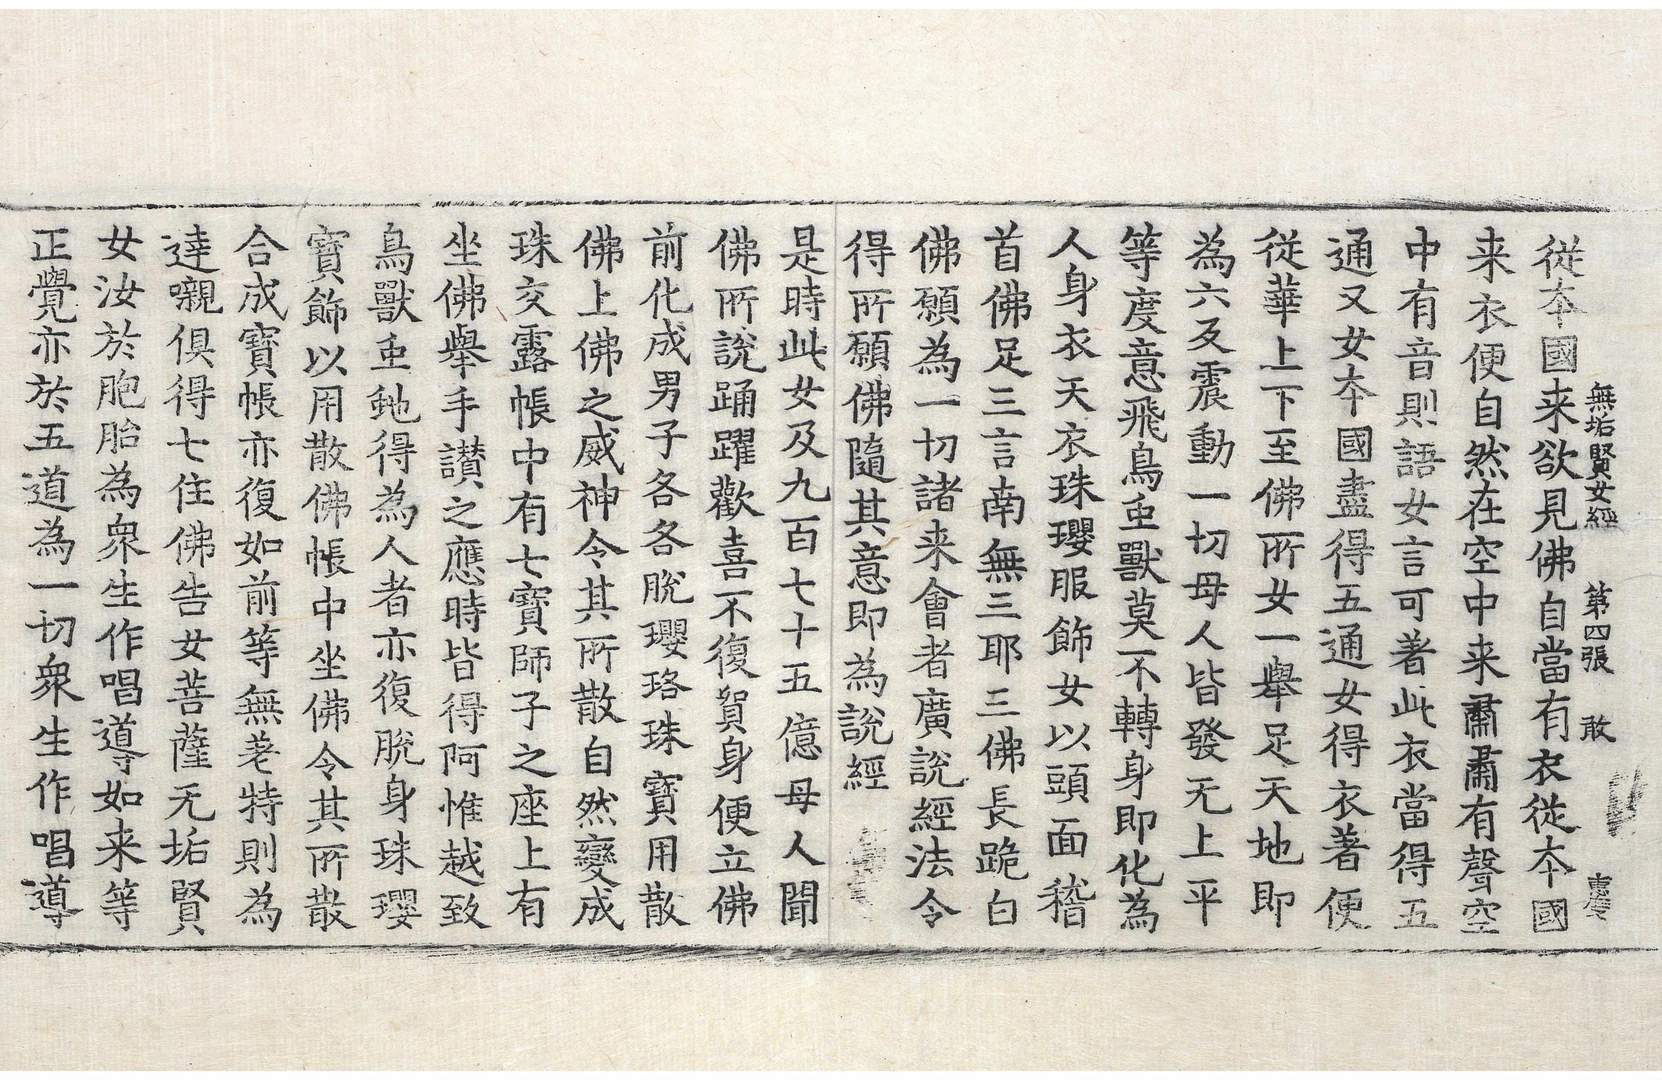 無垢賢女經 第四張 敢
從本國来欲見佛自當有衣從本國
来衣便自然在空中来肅肅有聲空
中有音則語女言可著此衣當得五
通又女本國盡得五通女得衣著便
從華上下至佛所女一舉足天地即
為六反震動一切母人皆發无上平
等度意飛鳥𫊻獸莫不轉身即化為
人身衣天衣珠瓔服飾女以頭面稽
首佛足三言南無三耶三佛長跪白
佛願為一切諸来會者廣說經法令
得所願佛隨其意即為說經
是時此女及九百七十五億母人聞
佛所說踊躍歡喜不復賀身便立佛
前化成男子各各脫瓔珞珠寶用散
佛上佛之威神令其所散自然變成
珠交露帳中有七寶師子之座上有
坐佛舉手讃之應時皆得阿惟越致
鳥獸𫊻虵得為人者亦復脫身珠瓔
寶飾以用散佛帳中坐佛令其所散
合成寶帳亦復如前等無差特則為
達嚫俱得七住佛告女菩薩无垢賢
女汝於胞胎為衆生作唱導如来等
正覺亦於五道為一切衆生作唱導